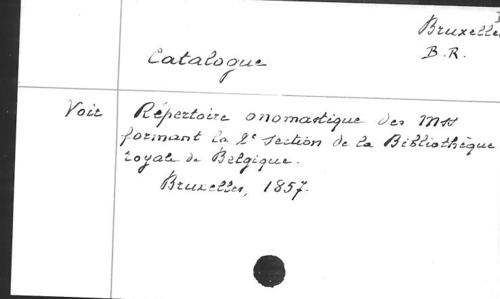 Bruxelles
B.R.
Catalogue
Voir Répertoire onomastique des Mss
formant la 2e section de la Bibliothèque
royale de Belgique.
Bruxelles, 1857.